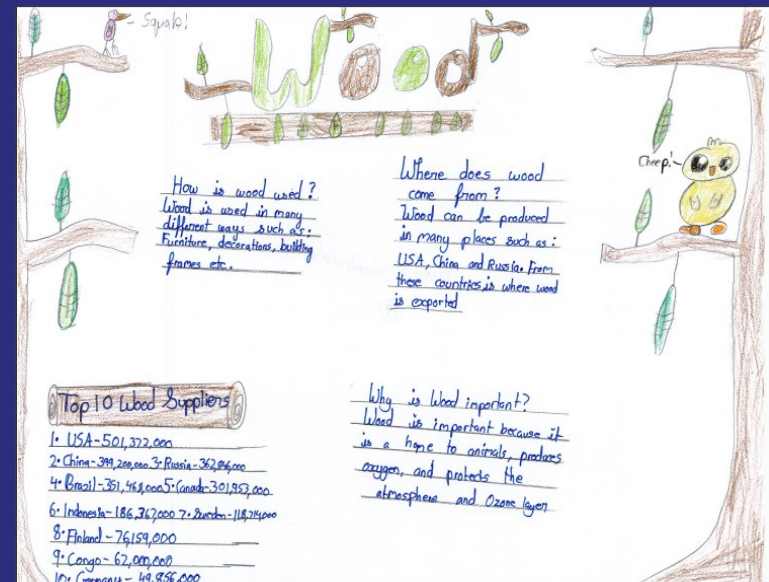 Squak!
Wood
Cheep!
How is wood used?
Wood is used in many
different ways such as:
Furniture, decorations, building
frames etc.
Where does wood
come from?
Wood can be produced
in many places such as:
USA, China and Russia. From
these countries is where wood
is exported
Top 10 Wood Suppliers
1. USA-501,372,000
2. China-399,200,000 3. Russia-362,846,000
4. Brazil-351,468,000 5. Canada-301,953,000
6. Indonesia-186,367,000 7. Sweden-118,714,000
8. Finland-76,159,000
9. Congo-62,000,000
10. Germany-49,856,000
Why is Wood important?
Wood is important because it
is a home to animals, produces
oxygen, and protects the
atmosphere and Ozone layer